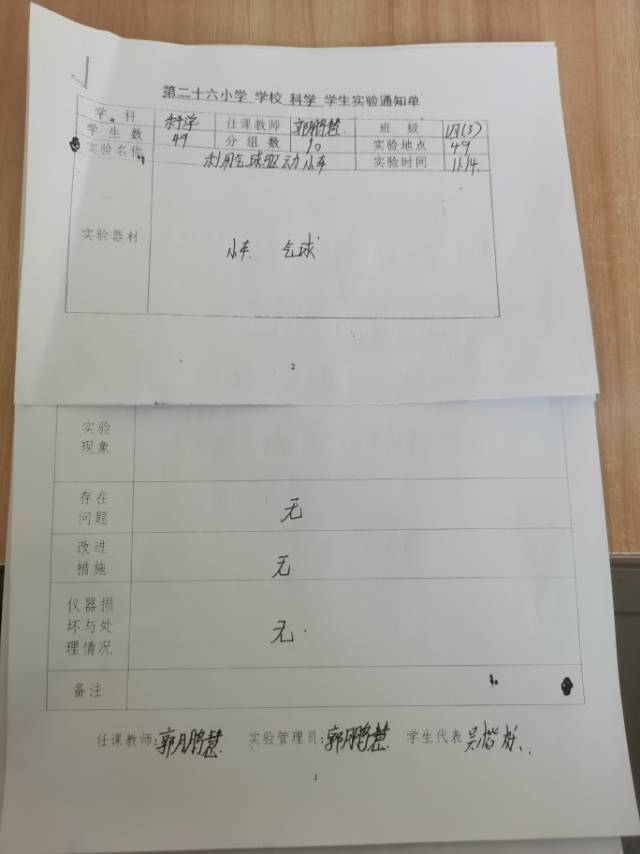 第二十六小学 学校 科学 学生实验通知单
学科 科学 任课教师 郭鹏慧 班级 四(3)
学生数 49 分组数 10 实验地点 49
实验名称 利用气球驱动小车 实验时间 11.14.
实验器材 小车. 气球
2
实验
现象
存在
问题 无
改进
措施 无
仪器损
坏与处
理情况 无.
备注
任课教师:郭鹏慧 实验管理员:郭鹏慧 学生代表 吴
4